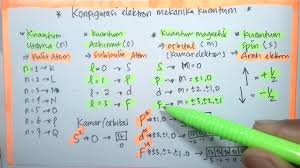 Konfigurasi elektron mekanika kuantum
Kuantum Utama (n)
Kulit Atom
n=1→K
n=2→L
n=3→M
n=4→N
n=5→O
n=6→P
n=7→Q
Kuantum Azimut (l)
Subkulit Atom
l=0→S
l=1→P
l=2→d
l=3→F
Kuantum magnetik
orbital (m)
S→m=0
P→m=±1,0
d→m=±2,±1,0
F→m=±3,±2,±1
Kuantum Spin (s)
Arah elektron
=+1/2
=-1/2
Kamar/orbital
S²→0→
P⁶ ±1,0
d ±2,±1,0
F ±3,±2,±1,0